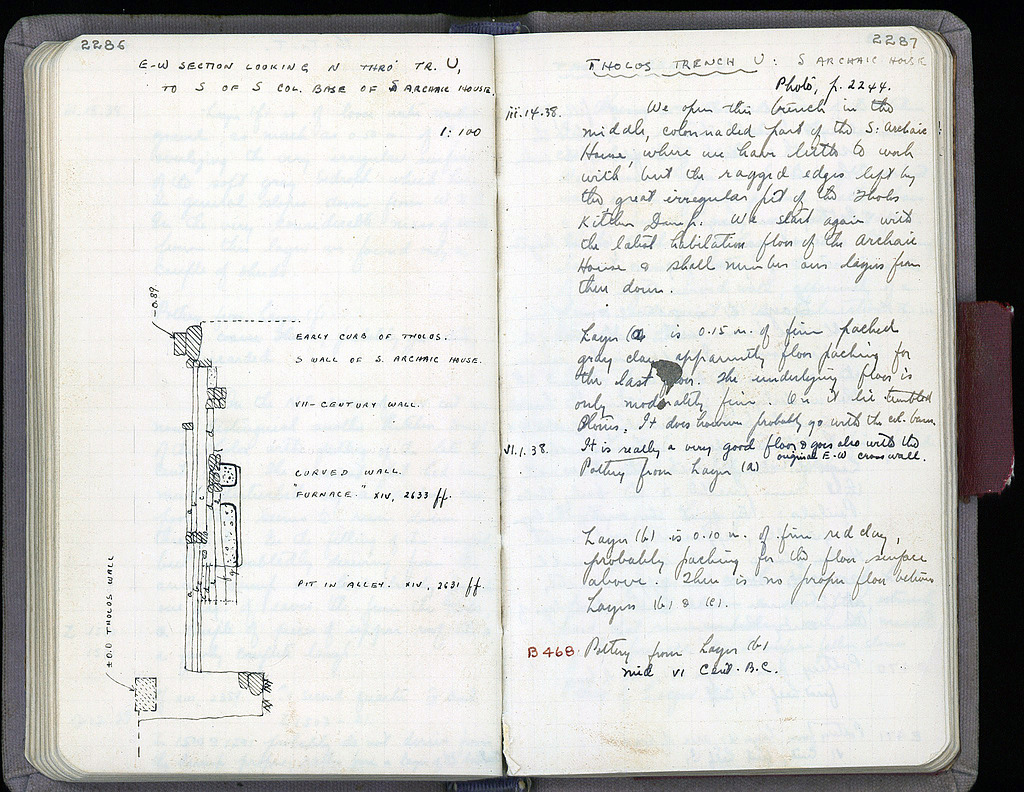 2286
E-W SECTION LOOKING N THRO' TR. U,
TO S OF S COL. BASE OF S ARCHAIC HOUSE.
1:100
-0.89
EARLY CURB OF THOLOS.
S WALL OF S. ARCHAIC HOUSE.
VII-CENTURY WALL.
CURVED WALL.
"FURNACE." XIV, 2633 ff.
PIT IN ALLEY. XIV, 2631 ff
±0.0 THOLOS WALL
2287
THOLOS TRENCH U: S ARCHAIC HOUSE
Photo, p. 2244.
iii.14.38. We open this trench in the
middle, colonnaded part of the S. Archaic
House, where we have little to work
with but the ragged edges left by
the great irregular pit of the Tholos
Kitchen Dump. We start again with
the latest habitation floor of the Archaic
House & shall number our layers from
there down.
Layer (a) is 0.15 m. of firm packed
gray clay, apparently floor packing for
the last floor. The underlying floor is
only moderately firm. On it lie tumbled
stones. It does however probably go with the col. bases.
VI.1.38. It is really a very good floor & goes also with the
original E-W cross wall.
Pottery from Layer (a)
Layer (b) is 0.10 m. of firm red clay,
probably packing for the floor surface
above. There is no proper floor between
Layers (b) & (c).
B 468 Pottery from Layer (b)
mid VI Cent. B.C.